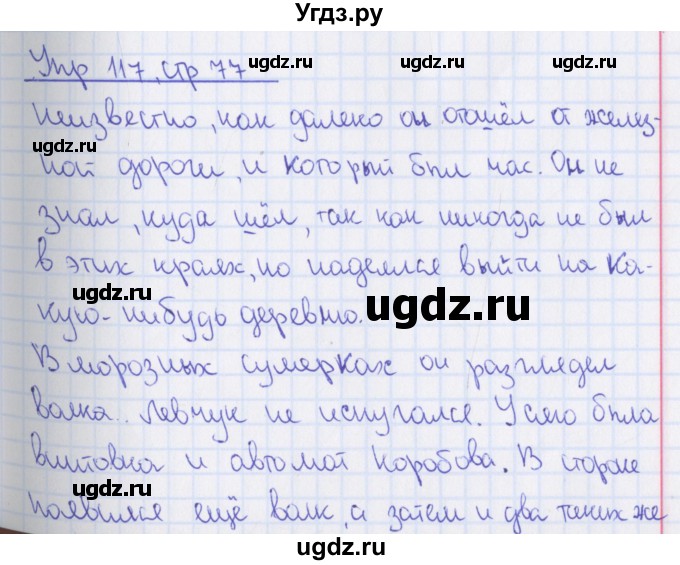 Угдз.ру
Упр 117, стр 77
Неизвестно, как далеко он отошёл от желез-
ной дороги, и который был час. Он не
знал, куда шёл, так как никогда не был
в этих краях, но надеялся выйти на ка-
кую-нибудь деревню.
В морозных сумерках он разглядел
волка. Левчук не испугался. У него была
винтовка и автомат Коробова. В стороне
появился ещё волк, а затем и два таких же
ugdz.ru
ugdz.ru
ugdz.ru
ugdz.ru
ugdz.ru
ugdz.ru
ugdz.ru
ugdz.ru
ugdz.ru
ugdz.ru
ugdz.ru